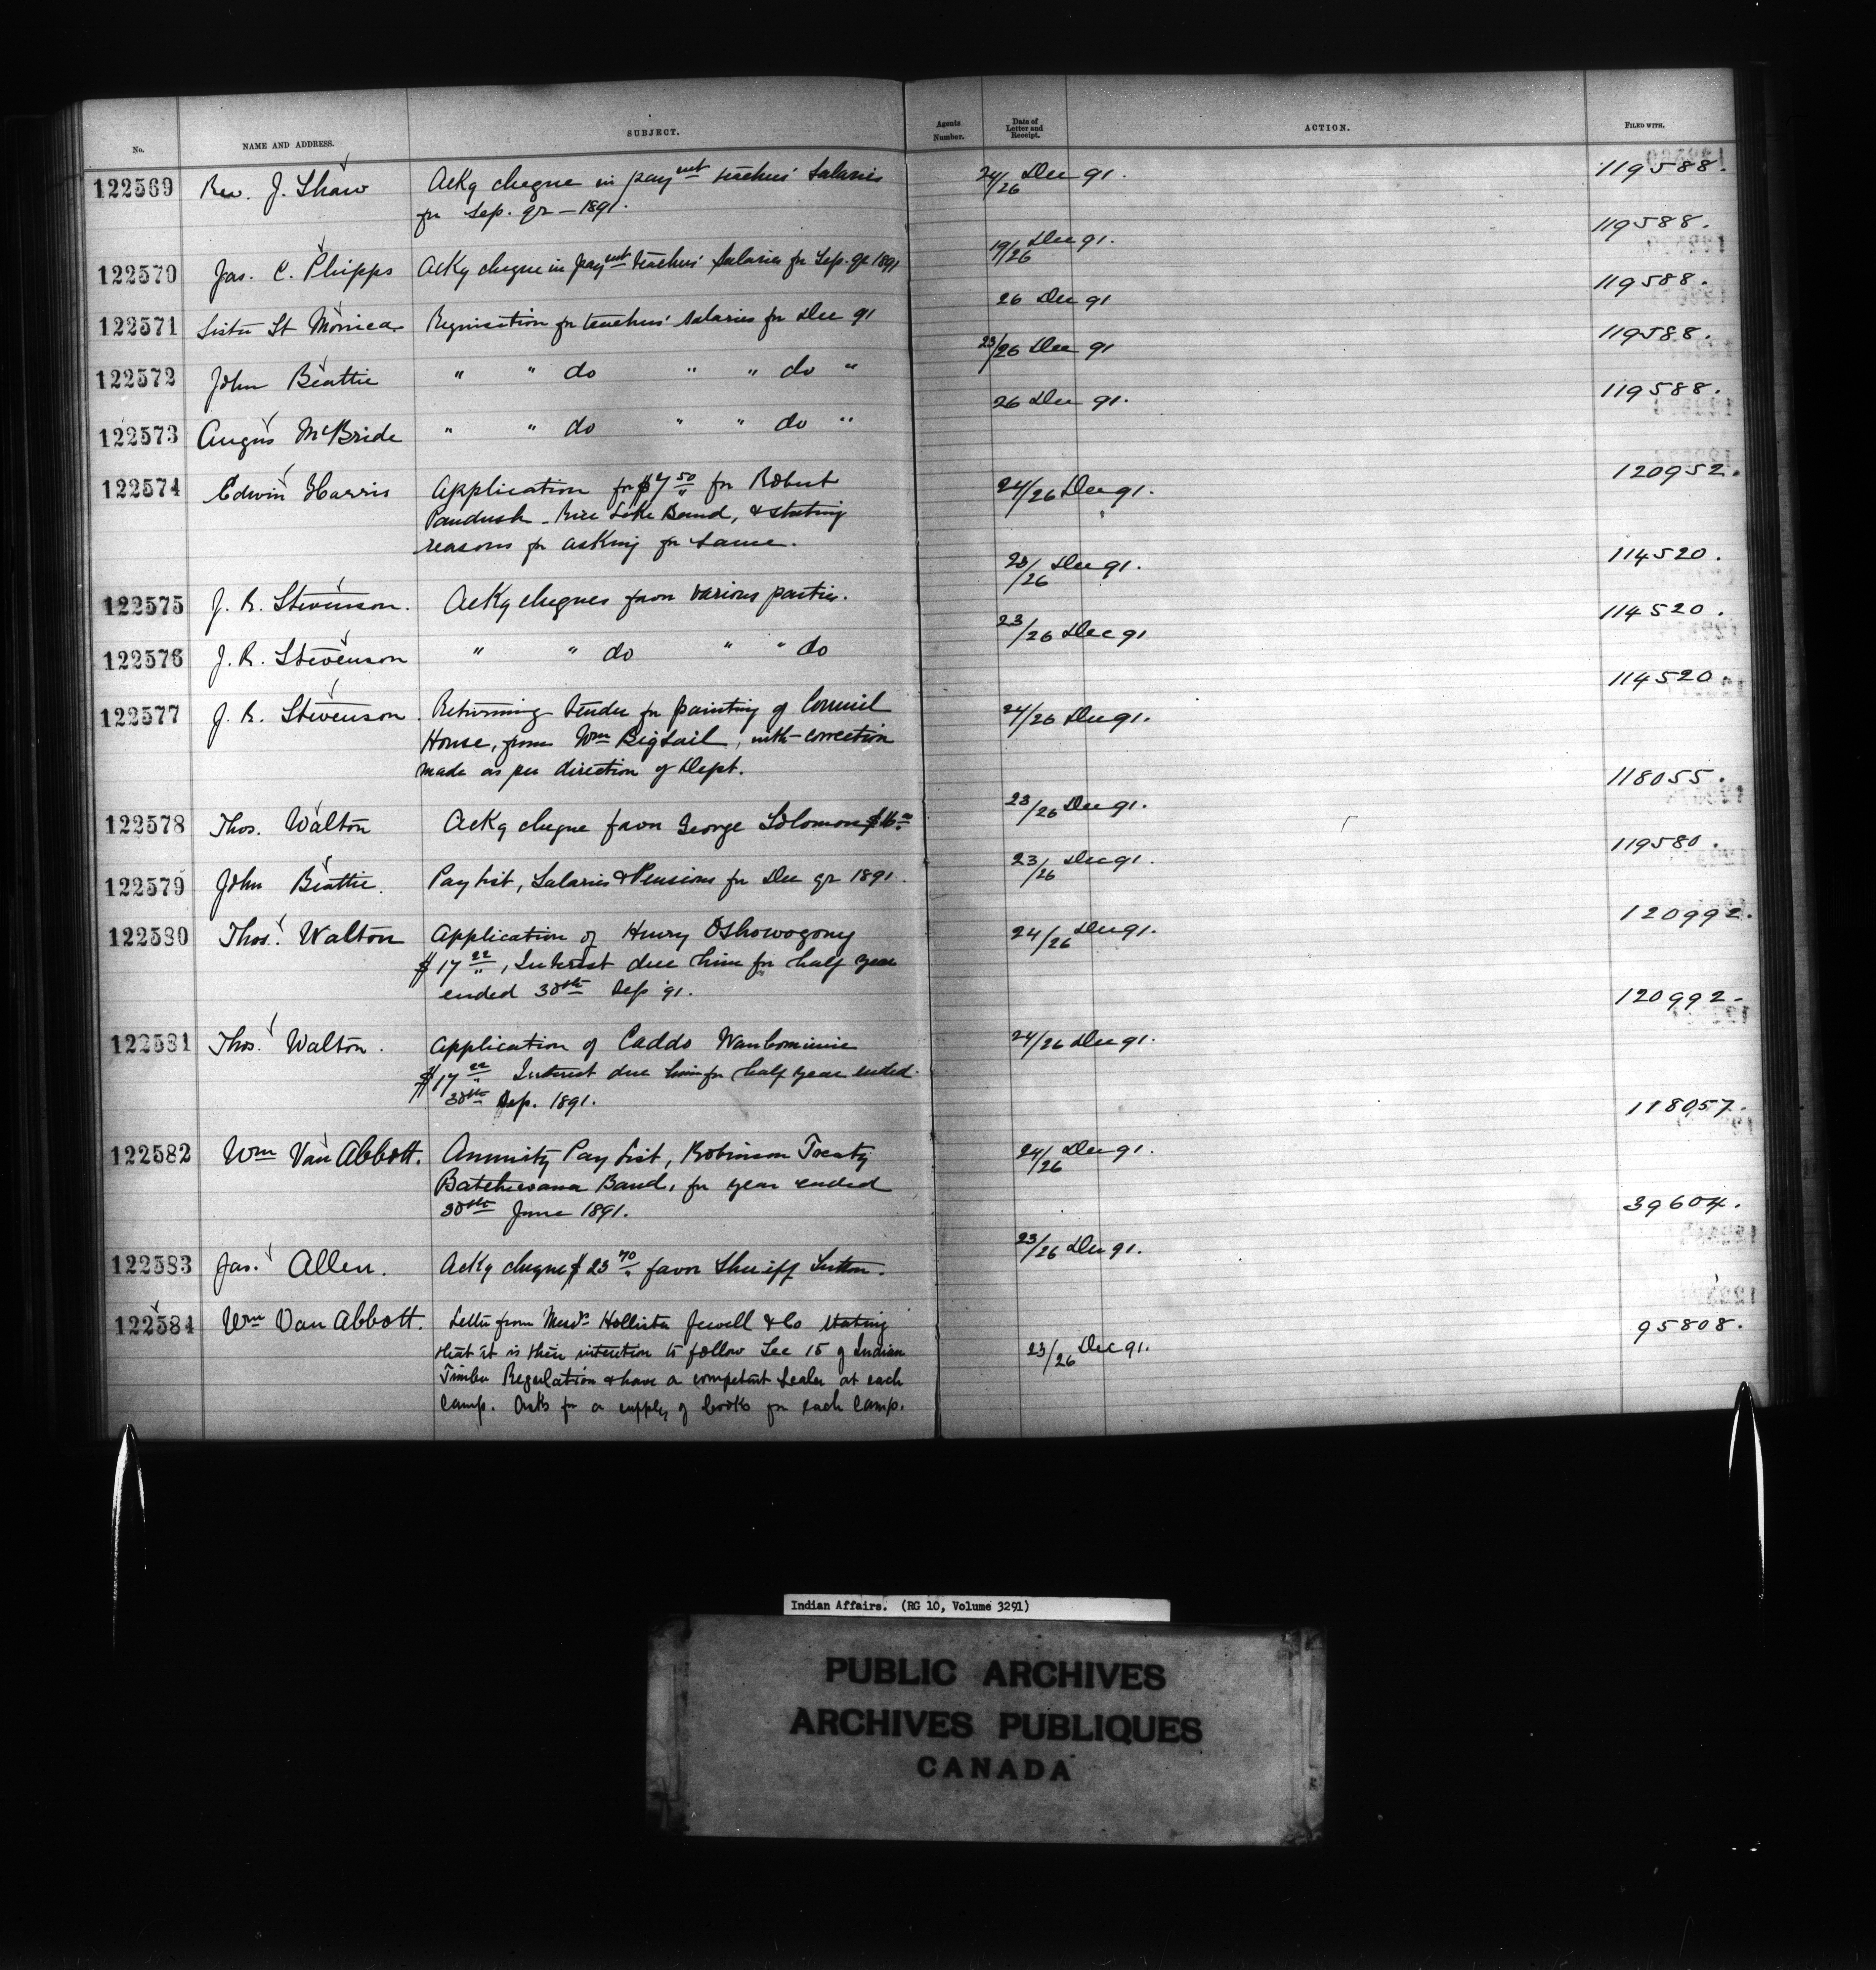 No.
NAME AND ADDRESS.
SUBJECT.
Agents Number.
Date of Letter and Receipt.
ACTION.
FILED WITH.
122569 Rev. J. Shaw Ackg cheque in paymt teachers' Salaries 24/26 Dec 91. 119588.
for Sep. qr - 1891.
122570 Jas. C. Phipps Ackg cheque in paymt teachers' Salaries for Sep. qr 1891 19/26 Dec 91. 119588.
122571 Sister St Monica Requisition for teachers' Salaries for Dec 91 26 Dec 91 119588.
122572 John Beattie " " do " " do " 23/26 Dec 91 119588.
122573 Angus McBride " " do " " do " 26 Dec 91. 119588.
122574 Edwin Harris Application for $7 50/" for Robert 24/26 Dec 91. 120952.
Paudush - Rice Lake Band, & stating
reasons for asking for same.
122575 J. R. Stevenson. Ackg cheques favor various parties. 23/26 Dec 91. 114520.
122576 J. R. Stevenson " " do " " do 23/26 Dec 91 114520.
122577 J. R. Stevenson. Returning tender for painting of Council 24/26 Dec 91. 114520.
House, from Wm Bigsail, with correction
made as per direction of Dept.
122578 Thos. Walton Ackg cheque favor George Solomon $16.00 23/26 Dec 91. 118055.
122579 John Beattie. Pay list, Salaries & Pensions for Dec qr 1891. 23/26 Dec 91. 119580.
122580 Thos. Walton Application of Henry Oshowogony 24/26 Dec 91. 120992.
$17 22/", Interest due him for half year
ended 30th Sep '91.
122581 Thos. Walton. Application of Caddo 24/26 Dec 91. 120992-
$17 22/" Interest due him for half year ended
30th Sep. 1891.
122582 Wm Van Abbott. Annuity Pay List, Robinson Treaty 24/26 Dec 91. 118057.
Batchewana Band, for year ended
30th June 1891.
122583 Jas. Allen. Ackg cheque $23 70/" favor Sheriff Sutton. 23/26 Dec 91. 39604.
122584 Wm Van Abbott. Letter from Messrs Hollister Jewell & Co stating 23/26 Dec 91. 95808.
that it is their intention to follow Sec 15 of Indian
Timber Regulation & have a competent Sealer at each
camp. Asks for a supply of books for each camp.
Indian Affairs. (RG 10, Volume 3291)
PUBLIC ARCHIVES
ARCHIVES PUBLIQUES
CANADA